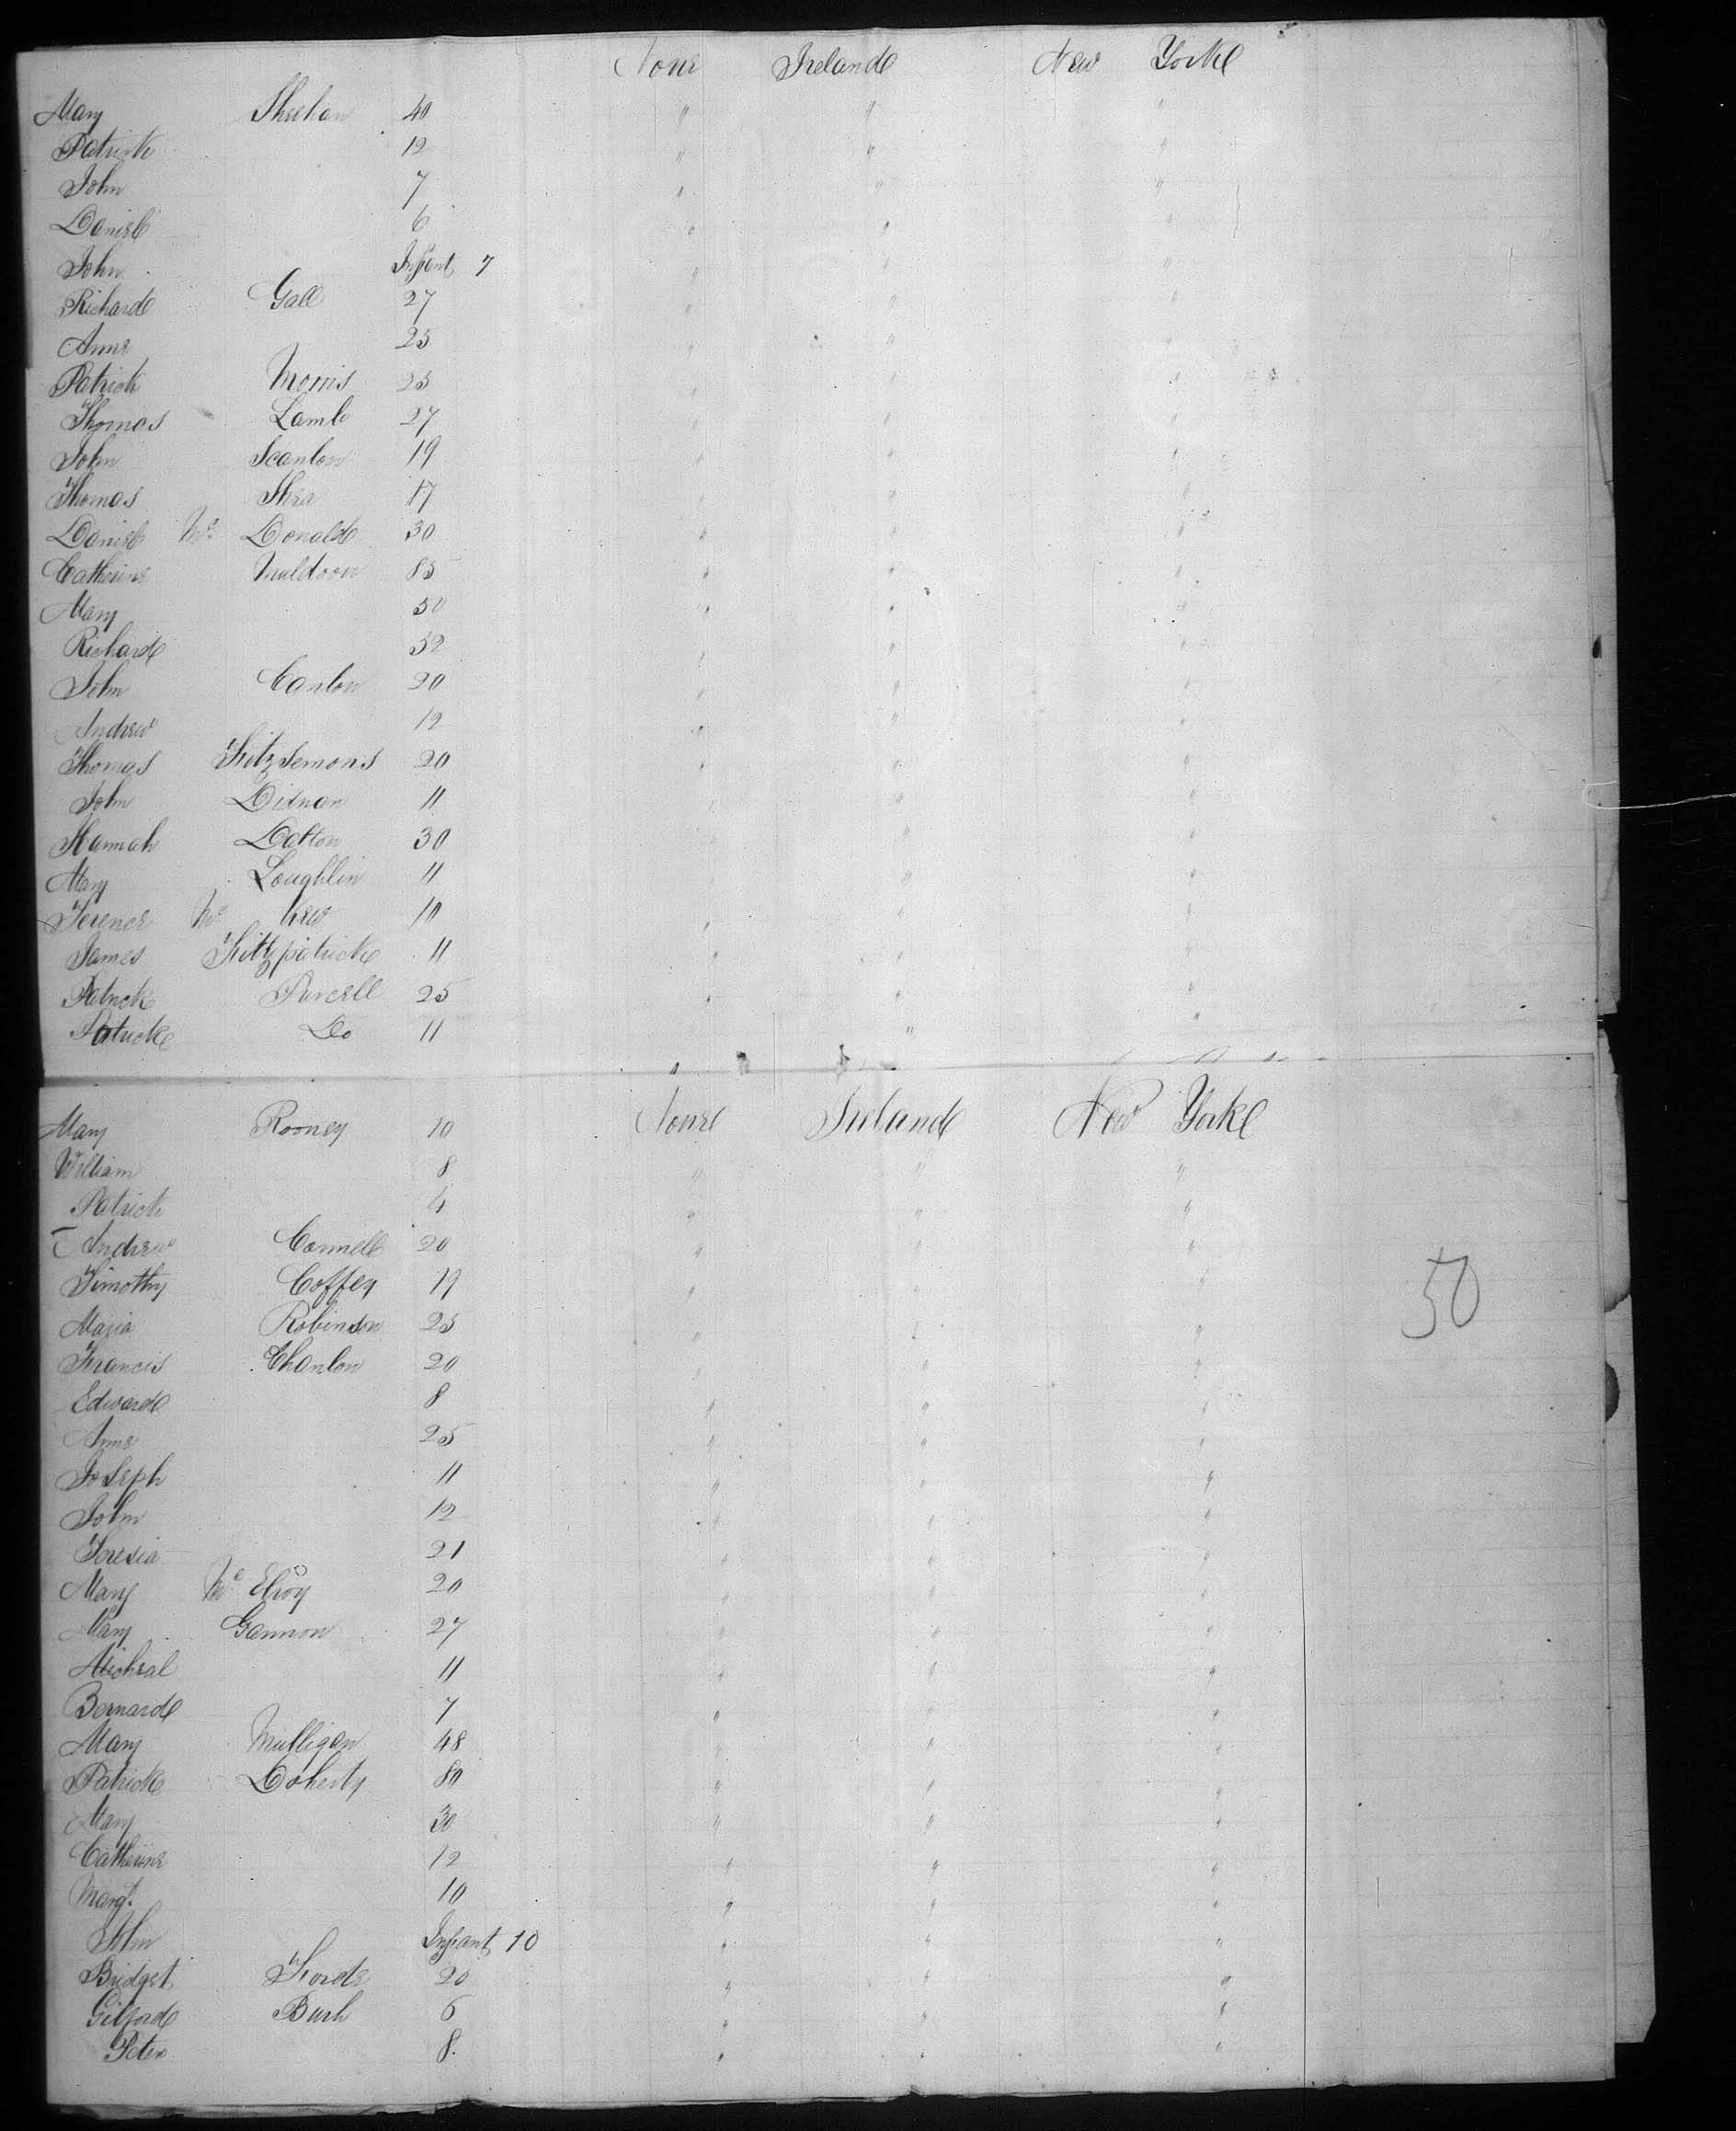 None Ireland New York
Mary Sheehan 40 " " "
Patrick 12 " " "
John 7 " " "
Daniel 6 " " "
John Infant 7 " " "
Richard Gall 27 " " "
Anne 25 " " "
Patrick Morris 25 " " "
Thomas Lamb 27 " " "
John Scanlon 19 " " "
Thomas Shea 17 " " "
Daniel Mc Donald 30 " " "
Catherine Muldoon 85 " " "
Mary 50 " " "
Richard 52 " " "
John Canlon 20 " " "
Andrew 12 " " "
Thomas Fitzsemons 20 " " "
John 11 " " "
Hannah Dalton 30 " "
Mary Loughlin 11 " "
Terence Mc 10 " "
James Fitzpatrick 11 " " "
Patrick Purcell 25 " " "
Patrick Do 11 " "
Mary Rooney 10 None Ireland New York
William 8 " " "
Patrick 4 " " "
Andrew Connell 20 " " "
Timothy Coffey 19 " " "
Maria Robinson 25 " " "
Francis Chanlon 20 " " "
Edward 8 " " "
Anne 25 " " "
Joseph 11 " " "
John 12 " " "
Teresia 21 " " "
Mary Mc Elroy 20 " " "
Mary Gannon 27 " " "
Micheal 11 " " "
Bernard 7 " " "
Mary Mulligan 48 " " "
Patrick Doherty 80 " " "
Mary 30 " " "
Catherine 12 " " "
Margt. 10 " " "
John Infant 10 " " "
Bridget Forde 20 " " "
Gilford Bush 6 " " "
Peter 8 " " "
50